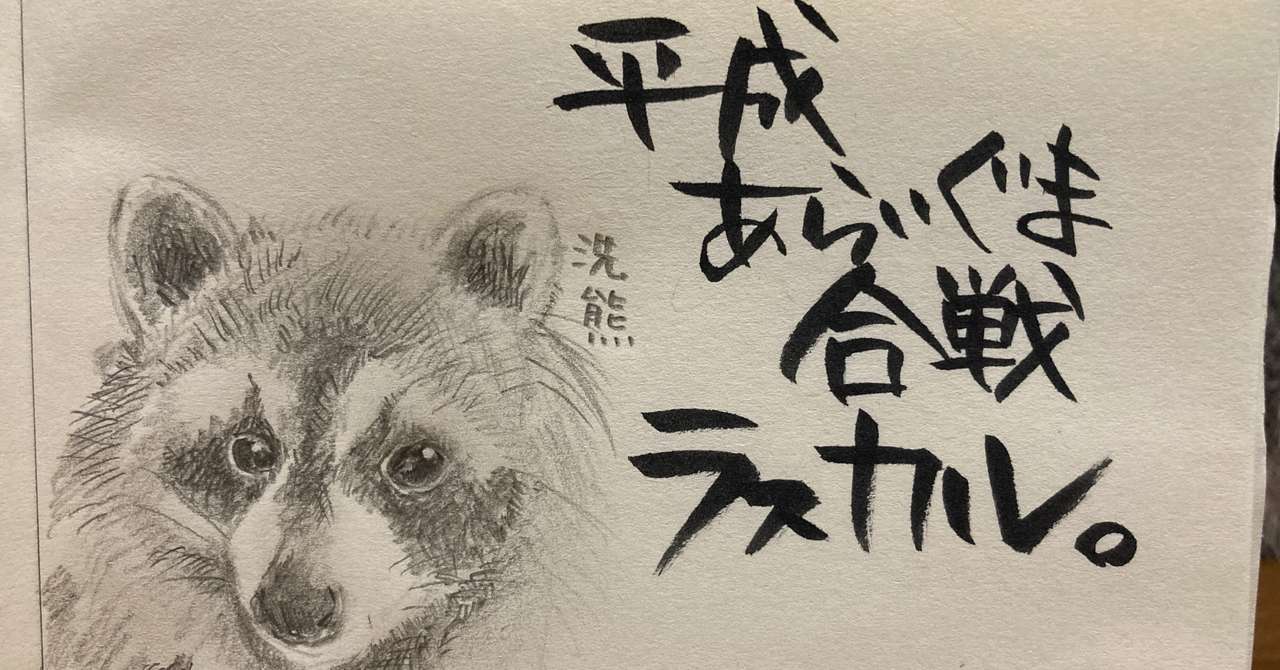 平成
あらいぐま
合戦
ラスカル。
洗熊